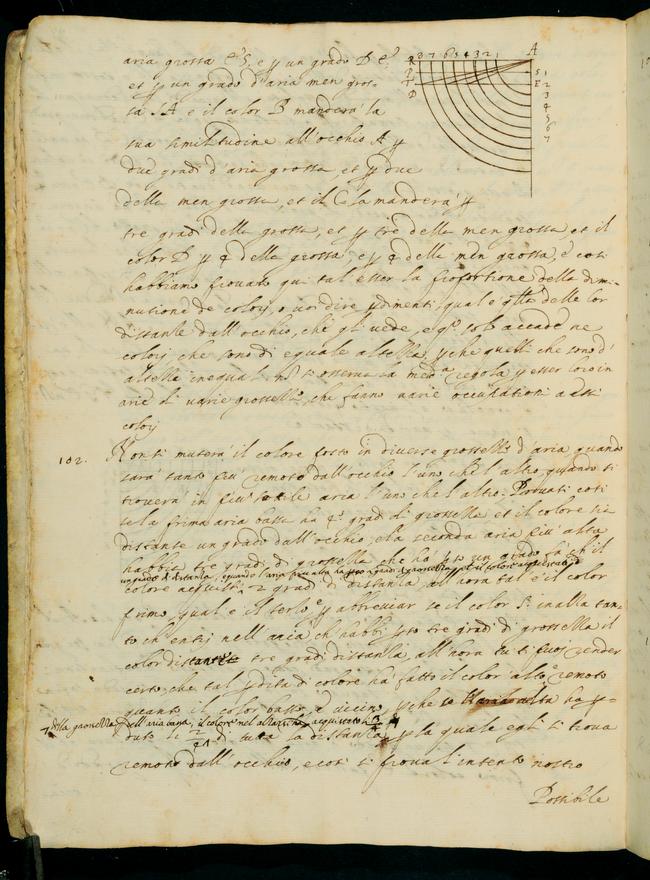 aria grossa e S, e p un grado D e
et p un grado d'aria men gros-
sa SA e il color B mandera la
sua similitudine all'occhio A p
due gradi d'aria grossa, et p due
della men grossa, et il C la mandera p
tre gradi della grossa, et p tre della men grossa et il
color D p 4 della grossa, e p 4 della men grossa, e cosi
habbiamo provato qui tal esser la proportione della dimi-
nutione de colorj, o voi dire p dimenti, qual e qlla delle lor
distantie dall'occhio, che gli vede, e qo solo accade ne
colorj che sono di equale altezza, p che quelli che sono d'
altezza inequali no si osserva la meda regola p esser loro in
arie di varie grossezze, che fanno varie occupationi a essi
colorj
102. Non si mutera il colore posto in diverse grossezze d'aria quando
sara tanto piu remoto dall'occhio l'uno che l'altro quando si
trovera in piu sottile aria l'uno che l'altro. Provasi cosi
se la prima aria bassa ha 4 gradi di grossezza et il colore sia
distante un grado dall'occhio, e la seconda aria piu alta
habbia tre gradi di grossezza che ha pso un grado fa ch'il
un grado di distanza, e quando l'aria piu alta ha pso 2 gradi di grossezza, et il colore acquistato
colore acquisti 2 gradi di distanza, all'hora tal e il color
primo, qual e il terzo e p abbreviar se il color S inalza tan-
to ch'entri nell'aria ch'habbi pso tre gradi di grossezza il
color distante tre gradi distanza, all'hora tu ti puoi render
certo, che tal pdita di colore ha fatto il color alto e remoto
quanto il color basso, e vicino, p che se l'aria alta ha p-
+ della grossezza dell'aria bassa, il colore nel alzarsi ha acquistato li 3/4
duto li 2/4 di tutta la distanza, p la quale egli si trova
remoto dall'occhio, e cosi si prova l'intento nostro
Possibile
R 8 7 6 5 4 3 2 1 A
P
T
D
S 1
E 2
3
4
5
6
7